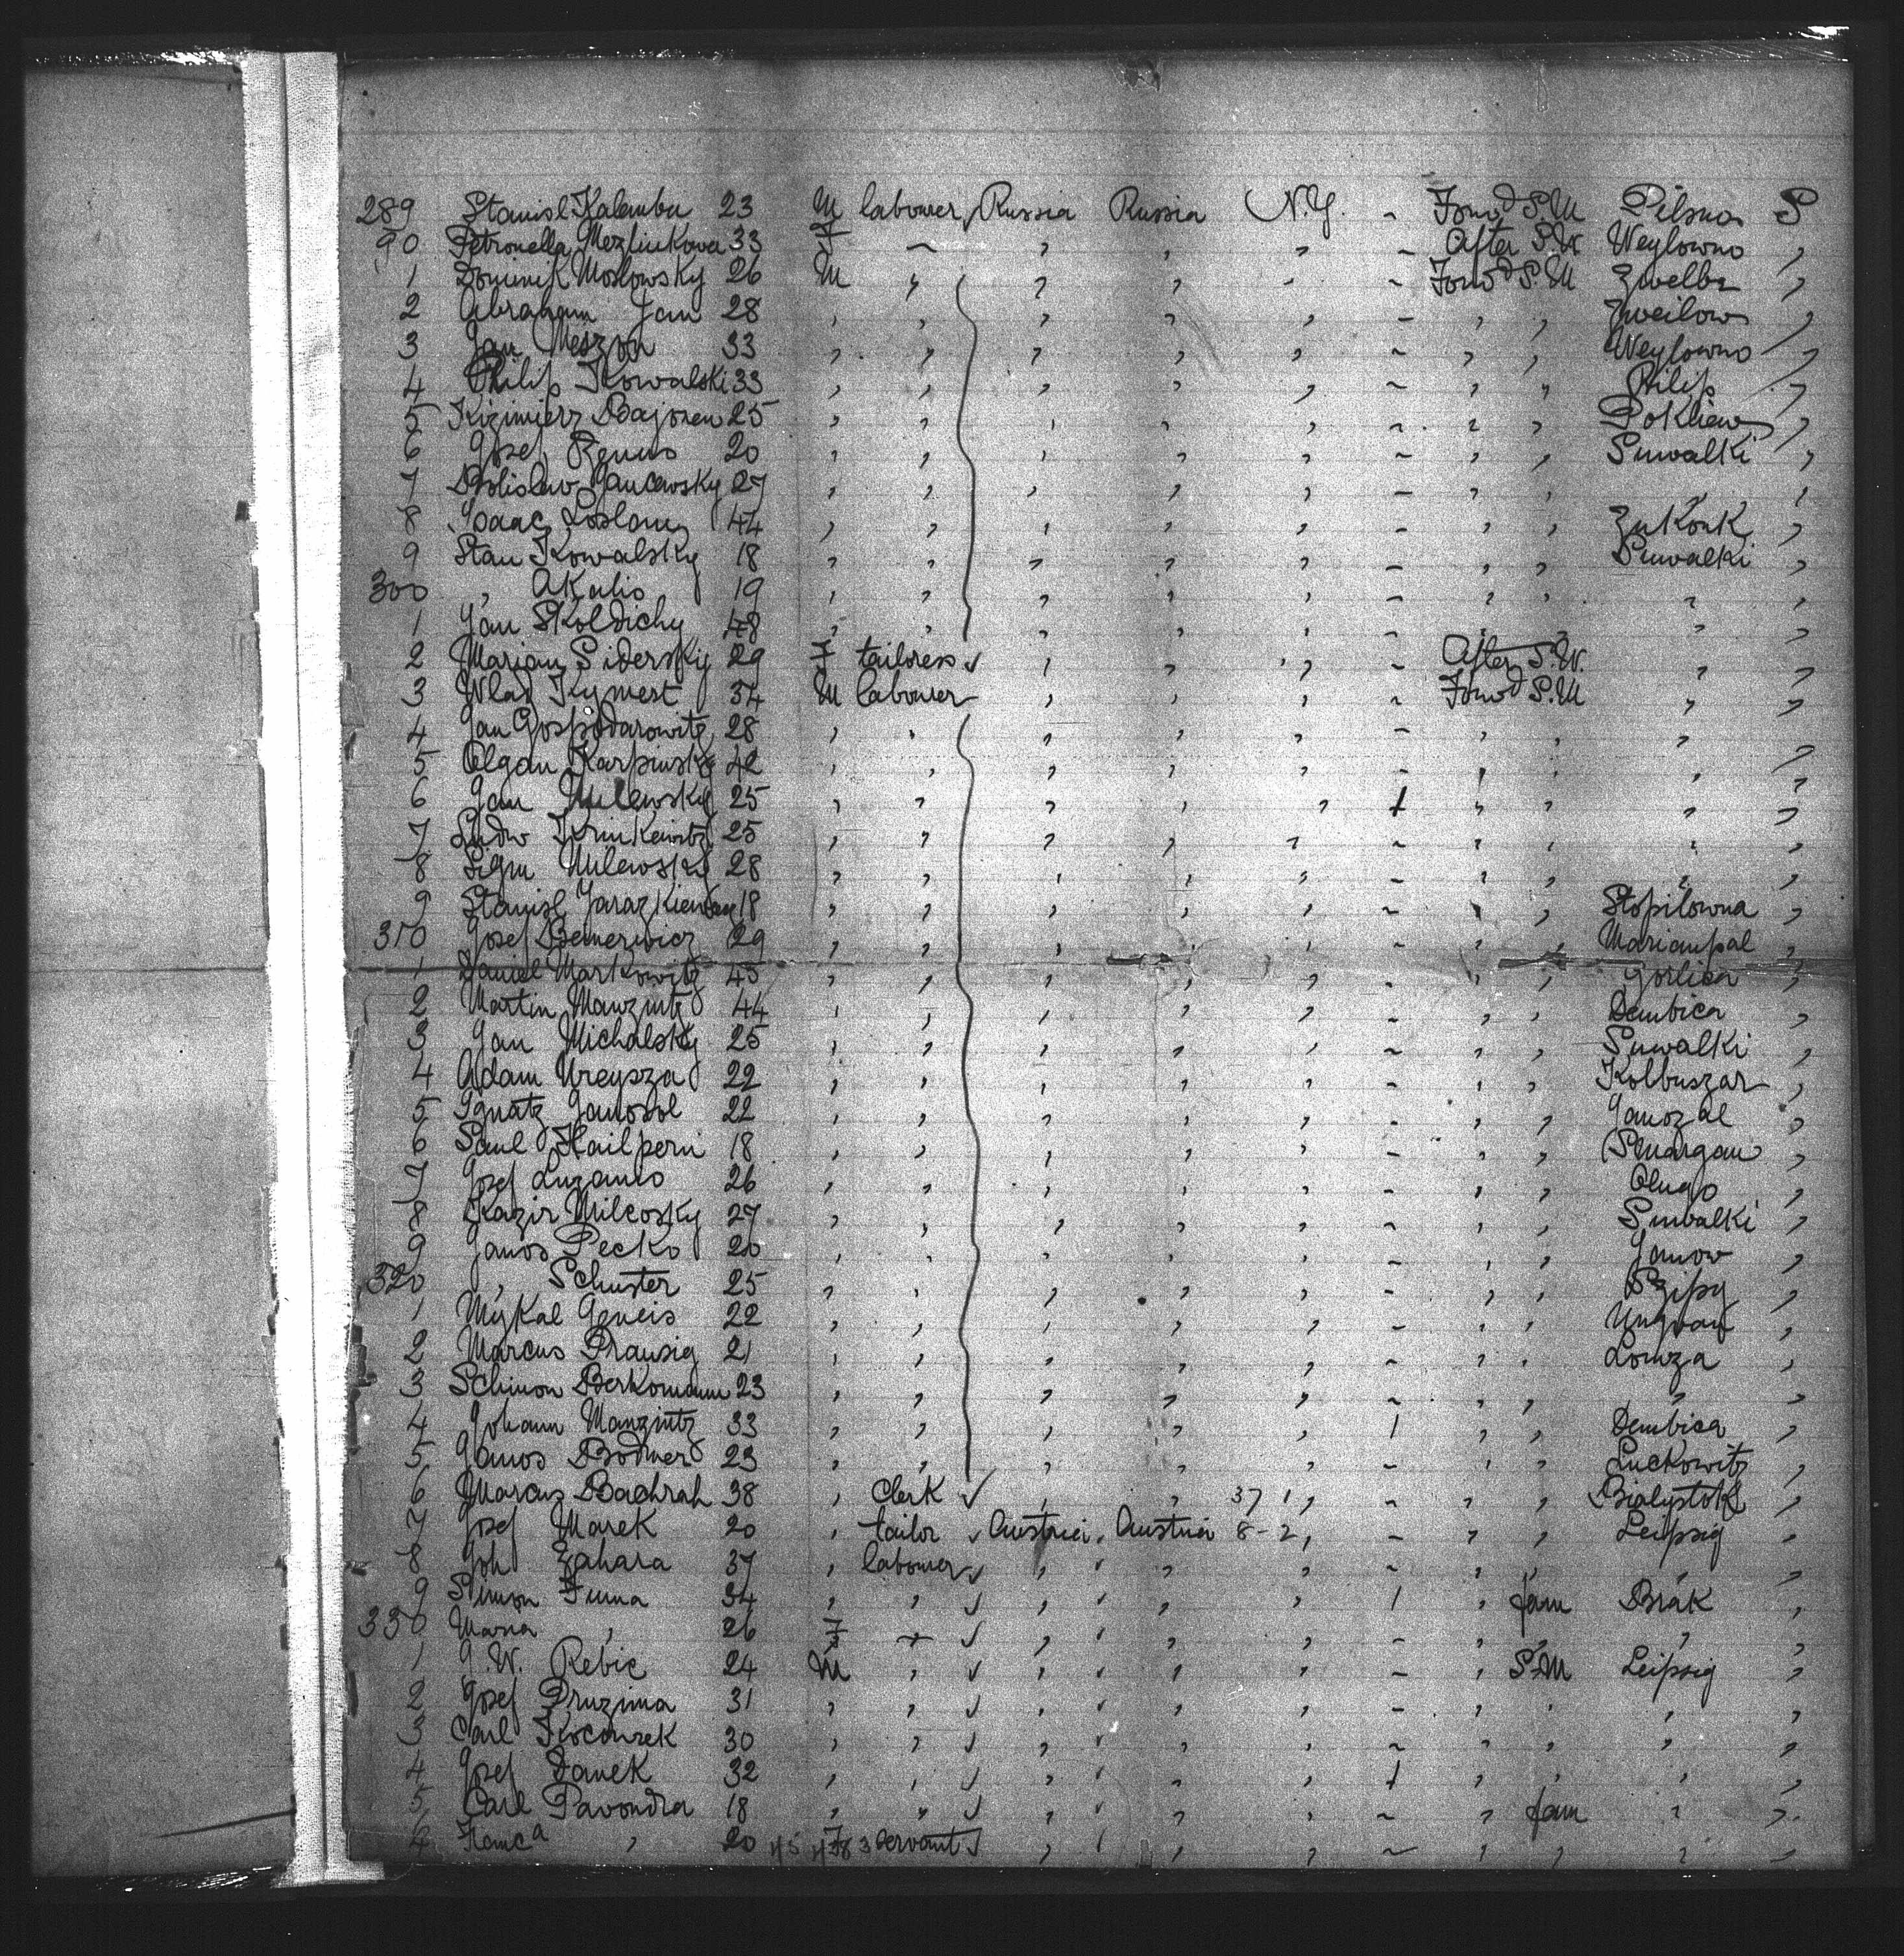 289 Stanisl Kalembu 23 M labourer Russia Russia N.Y. - Forwd S.M Pilsno S
90 Petronella Mezlinkowa 33 F ~ " " " - After S.W Weylowno "
1 Dominik Moslowsky 26 M " " " - - Forwd S.M Zwelbe "
2 Abraham Jan 28 " " " " " - " " Zweilow "
3 Jan Meszon 33 " " " " " ~ " " Weylowno "
4 Philip Kowalski 33 " " " " " ~ " " Philip "
5 Kizimierz Bajoren 25 " " " " " ~ " " "
6 Josef 20 " " " " " ~ " " Suwalki "
7 Bolislav Jancawsky 27 " " " " " - " " " "
8 Isaac 44 " " " " " - " " "
9 Stan Kowalsky 18 " " " " " - " " Suwalki "
300 " Akalis 19 " " " " " - " " " "
1 Jan Skoldichy 48 " " " " " - " " " "
2 Marian Sidersky 29 F tailoress " " " - After S.W. " "
3 Wlad Kymest 34 M labourer " " " - Forwd S.M " "
4 Jan Gospodarowitz 28 " " " " " - " " " "
5 Olgan Karpinsky 42 " " " " " - " " " "
6 Jan Milewsky 25 " " " " " 1 " " " "
7 Ludw Krinkewitz 25 " " " " " ~ " " " "
8 Sigm Milewski 28 " " " " " - " " " "
9 Stanisl 18 " " " " " ~ " " Stopilowna "
310 Josef Bemerwicz 29 " " " " " - " " Mariaupal "
1 Daniel Markowitz 45 " " " " " - " " Gorlica "
2 Martin Manzintz 44 " " " " " ~ " " Dembica "
3 Jan Michalsky 25 " " " " " ~ " " Suwalki "
4 Adam 22 " " " " " - " " Kolbuszar "
5 Ignatz Janosol 22 " " " " " - " " Janozal "
6 Saul Hailpern 18 " " " " " - " " Smargan "
7 Josef Luzanis 26 " " " " " - " " "
8 Kazir Milcosky 27 " " " " " ~ " " Suwalki "
9 Janos Pecko 20 " " " " " ~ " " Janow "
320 " Schuster 25 " " " " " - " " "
1 Mykal Geneis 22 " " " " " - " " Ungvar "
2 Marcus Prausig 21 " " " " " - " " Lomza "
3 Schimon Berkomann 23 " " " " " ~ " " " "
4 Johann Manzintz 33 " " " " " 1 " " Dembica "
5 Janos Bodner 23 " " " " " ~ " " Luckowitz "
6 Marcus Bachrah 38 " Clerk " " 37 1 " ~ " " Bialystok "
7 Josef Marek 20 " tailor Austria Austria 8-2 " - " " Leipsig "
8 Joh Zahara 37 " labourer " " " ~ " " " "
9 Simon Tuma 34 " " " " " 1 " fam Brak "
330 Maria " 26 F ~ " " " - " " " "
1 J. W. Rebic 24 M " " " " - " S.M Leipsig "
2 Josef Pruzina 31 " " " " " - " " " "
3 Carl Kocourek 30 " " " " " ~ " " " "
4 Josef Danek 32 " " " " " 1 " " " "
5 Carl Pavondra 18 " " " " " ~ " fam " "
6 " 20 F servant " " " ~ " " " "